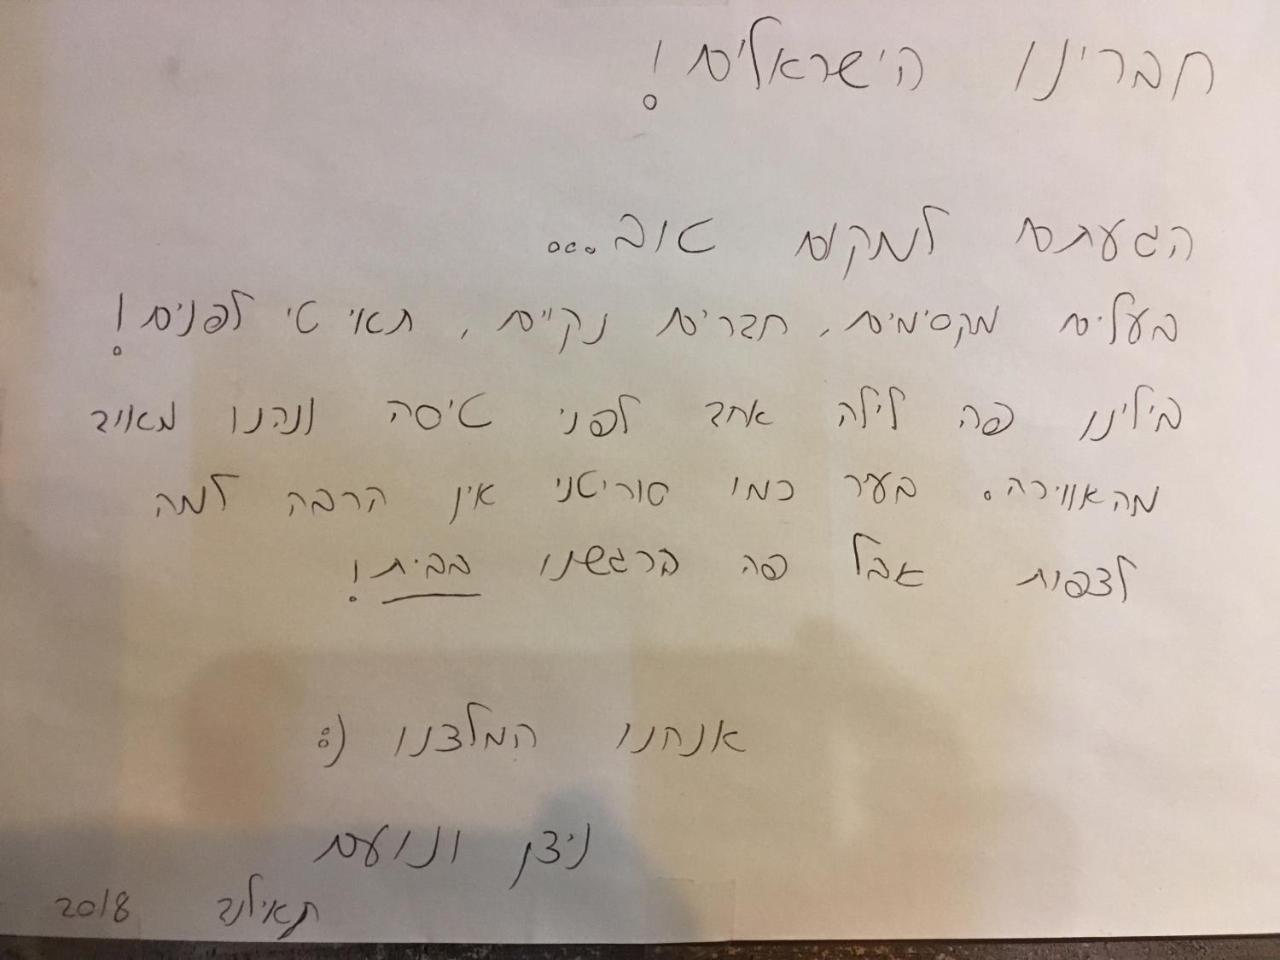 חברינו הישראלים!
הגעתם למקום טוב...
בעלים מקסימים, חברים נקיים, תאי טי לפנים!
בילינו פה לילה אחד לפני טיסה ונהנו מאויב
מהאווירה. בעיר כמו סוריטני אין הרבה למה
לצפות אבל פה הרגשנו בבית!
אנחנו המלצנו (:
ניצן ונועם
תאילנד 2018